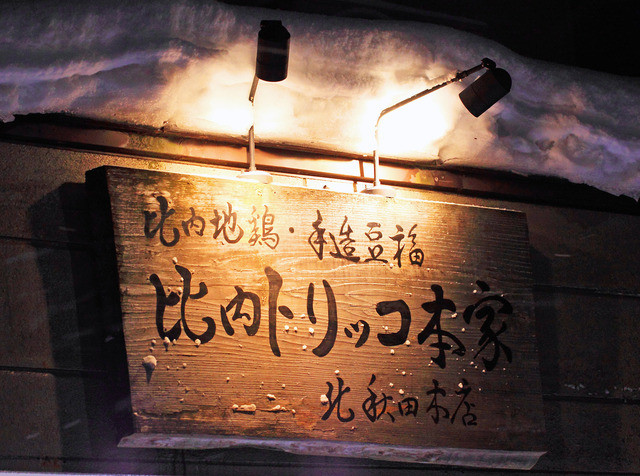 比内地鶏・手造豆福
比内トリッコ本家
北秋田本店